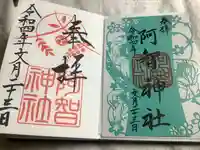 奉拝
阿智神社
令和四年文月二十三日
奉拝
阿智神社
令和四年
文月二十三日